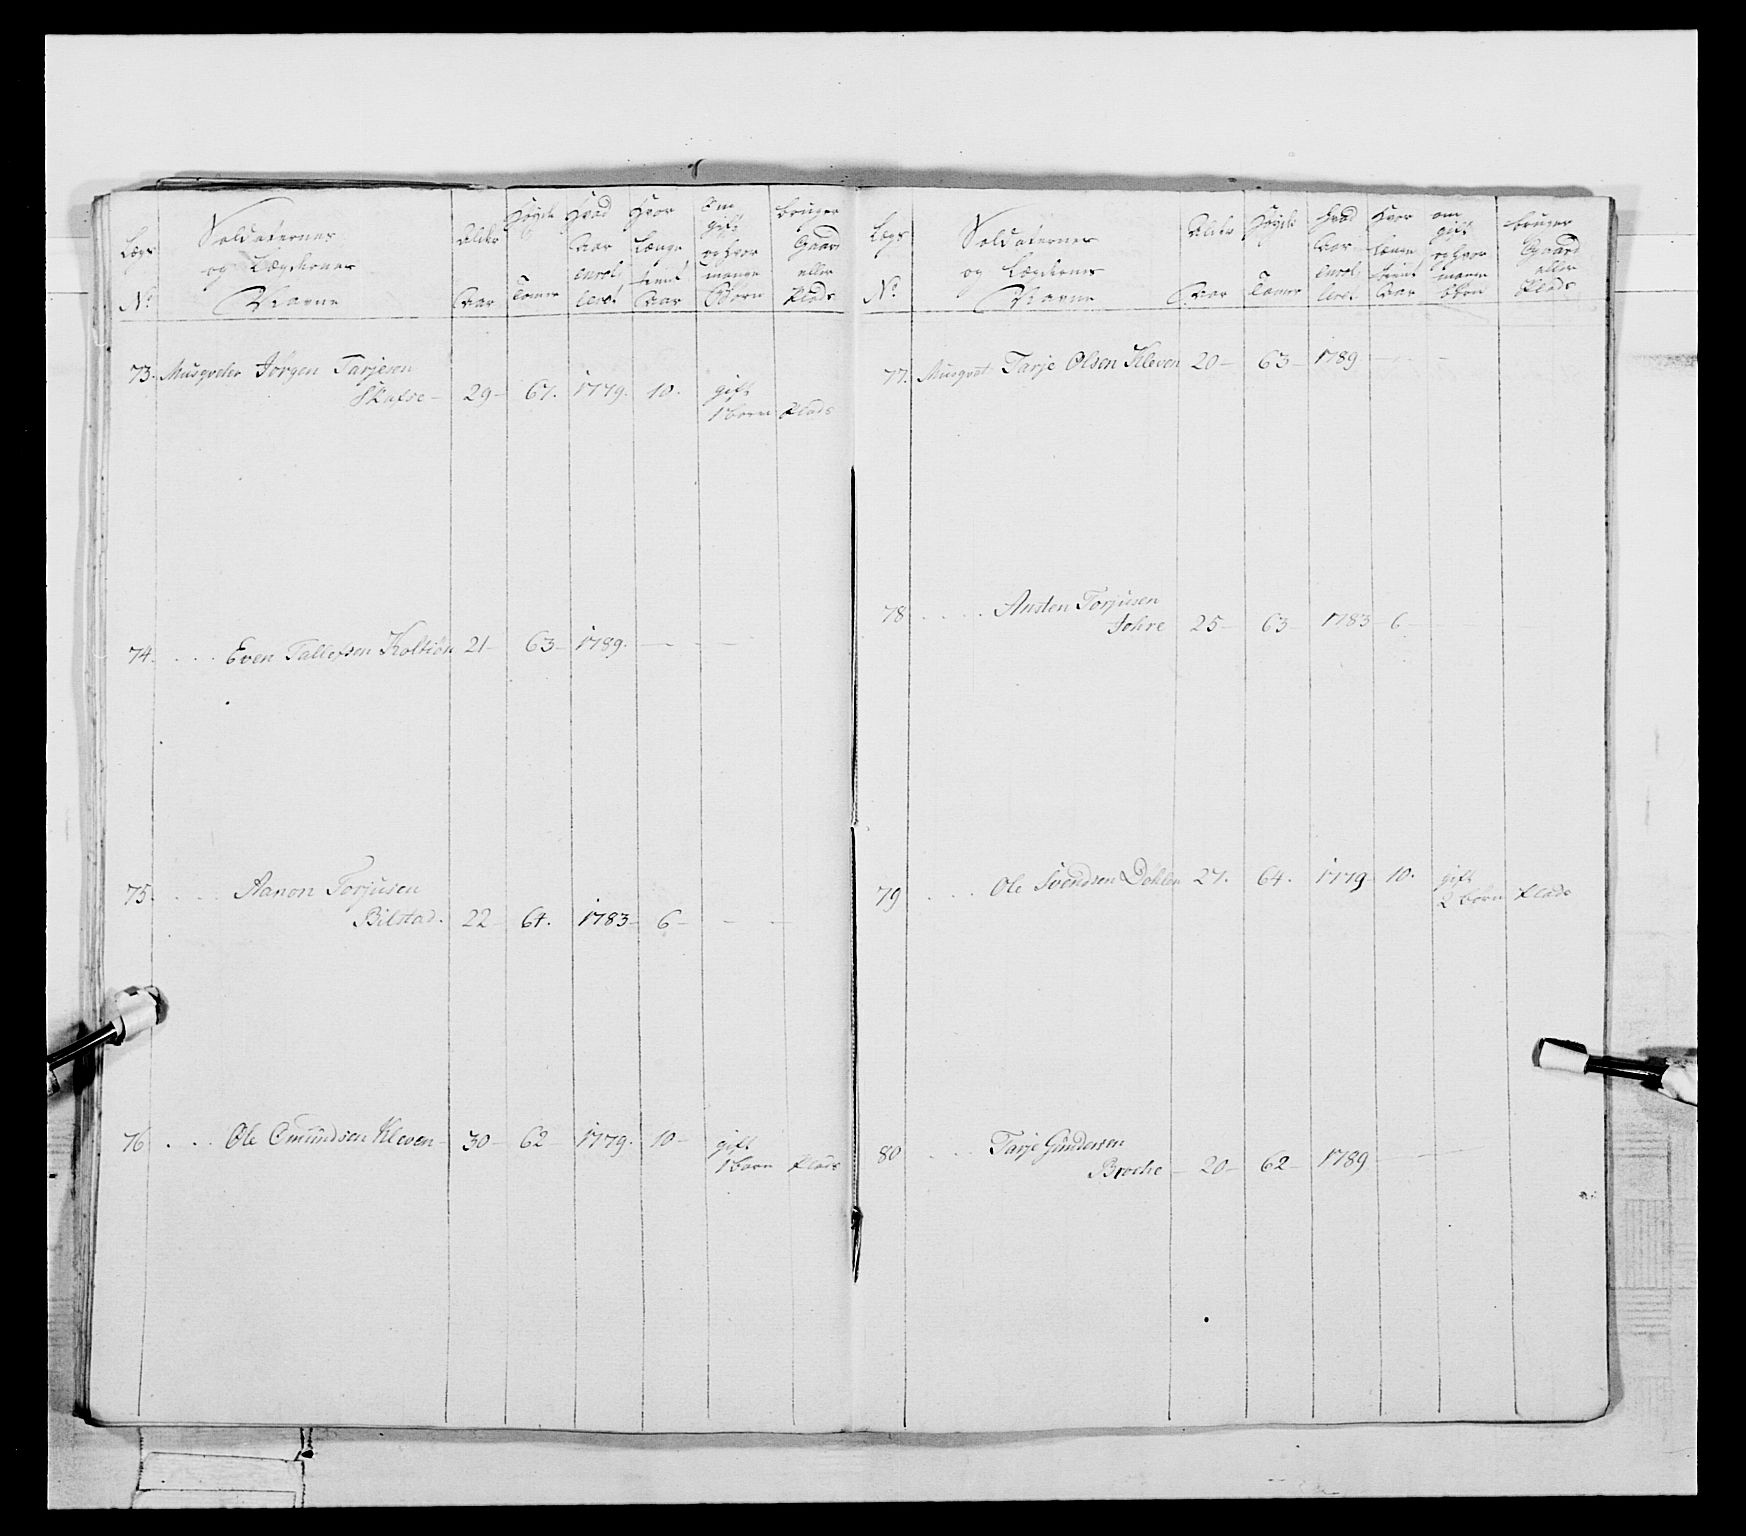 Lægs
No
Soldaternes
og Lægdernes
Navne
Alder
Aar
Høyde
Tomer
Hvad
Aar
enrol
leret
Hvor
Længe
tient
Aar
Om
gift
og hvor
mange
Børn
bruger
Gaard
eller
Plads
73. Musqveter Jörgen Tarjesen
Skafse - 29 - 67. 1779. 10. gift
1 børn Plads
74. Even Tallefsen 21 - 63 - 1789. - -
75. Aanon Torjusen
Bilstad. 22 - 64. 1783 - 6 - - -
76 Ole Omundsen Kleven - 30 - 62 - 1779. 10 - gift
1 børn Plads
Lægs
No
Soldaternes
og Lægdernes
Navne
Alder
Aar
Høyde
Tomer
Hvad
Aar
enrol
leret
Hvor
længe
tient
Aar
om
gift
og hvor
mange
børn
bruger
Gaard
eller
Plads
77. Musqvet Tarje Olsen Kleven 20 - 63 - 1789 - -
78 Ansten Torjusen
25 - 63 - 1783 - 6 -
79 Ole Svendsen 27. 64. 1779 - 10. gift
2 børn Plads
80 Tarje Gundersen
Broche - 20 - 62 - 1789 - -